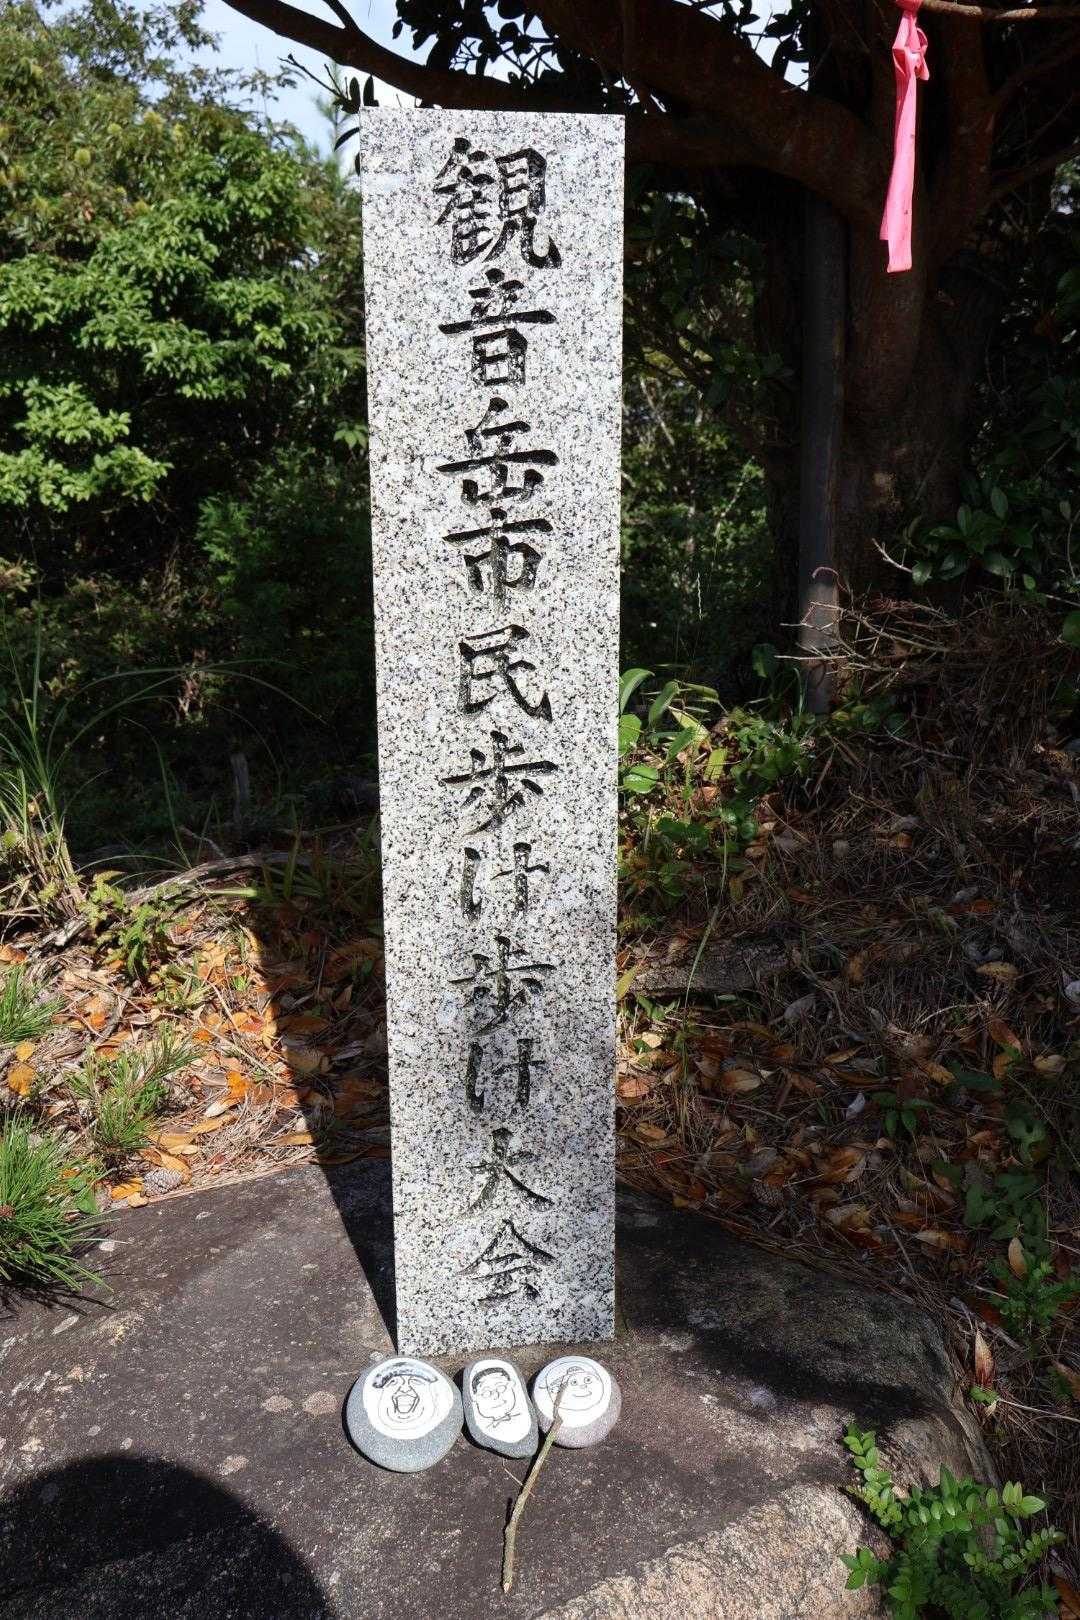 観音岳市民歩け歩け大会